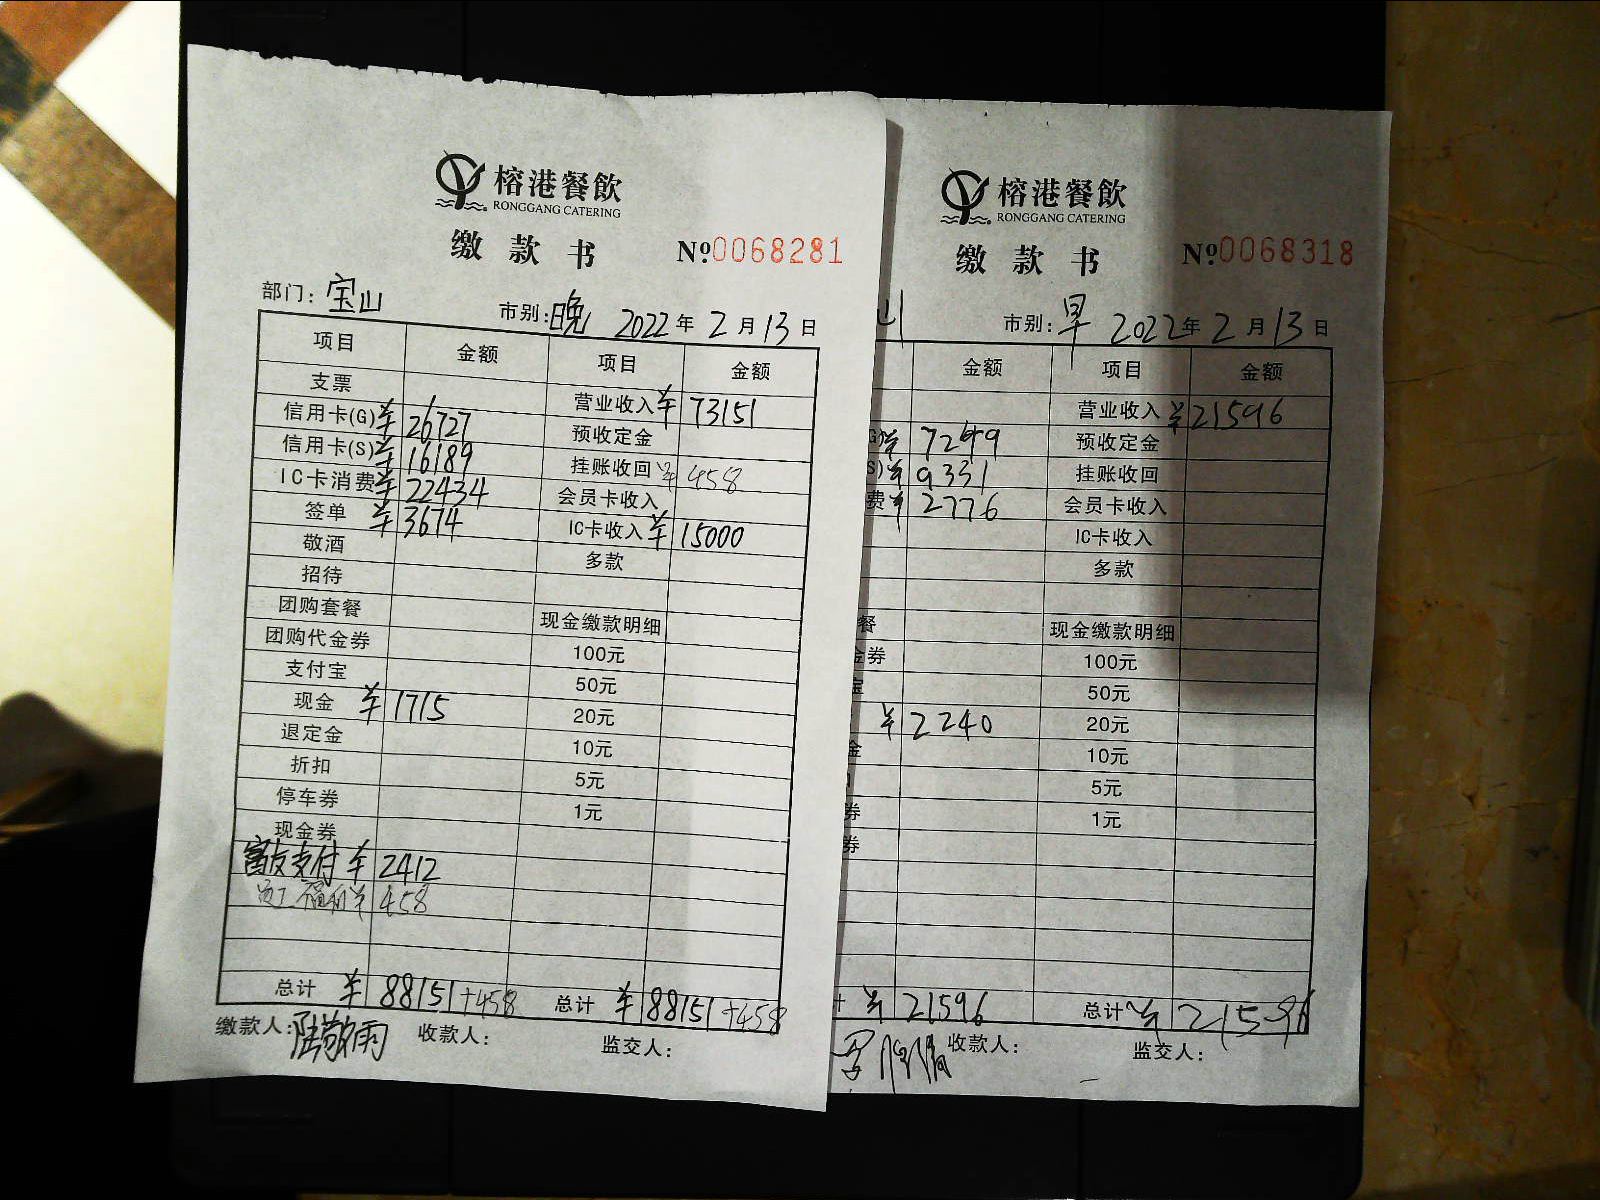 榕港餐飲
RONGGANG CATERING
缴款书 №0068281
部门: 宝山 市别: 晚 2022年2月13日
项目 金额 项目 金额
支票 营业收入 ¥73151
信用卡(G) ¥26727 预收定金
信用卡(S) ¥16189 挂账收回 ¥458
IC卡消费 ¥22434 会员卡收入
签单 ¥3674 IC卡收入 ¥15000
敬酒 多款
招待
团购套餐 现金缴款明细
团购代金券 100元
支付宝 50元
现金 ¥1715 20元
退定金 10元
折扣 5元
停车券 1元
现金券
富友支付 ¥2412
员工福利 ¥458
总计 ¥88151+458 总计 ¥88151+458
缴款人: 陆敬雨 收款人: 监交人:
榕港餐飲
RONGGANG CATERING
缴款书 №0068318
山 市别: 早 2022年2月13日
金额 项目 金额
营业收入 ¥21596
G) ¥7249 预收定金
S) ¥9331 挂账收回
费 ¥2776 会员卡收入
IC卡收入
多款
餐 现金缴款明细
金券 100元
宝 50元
¥2240 20元
金 10元
5元
券 1元
券
计 ¥21596 总计 ¥21596
收款人: 监交人: